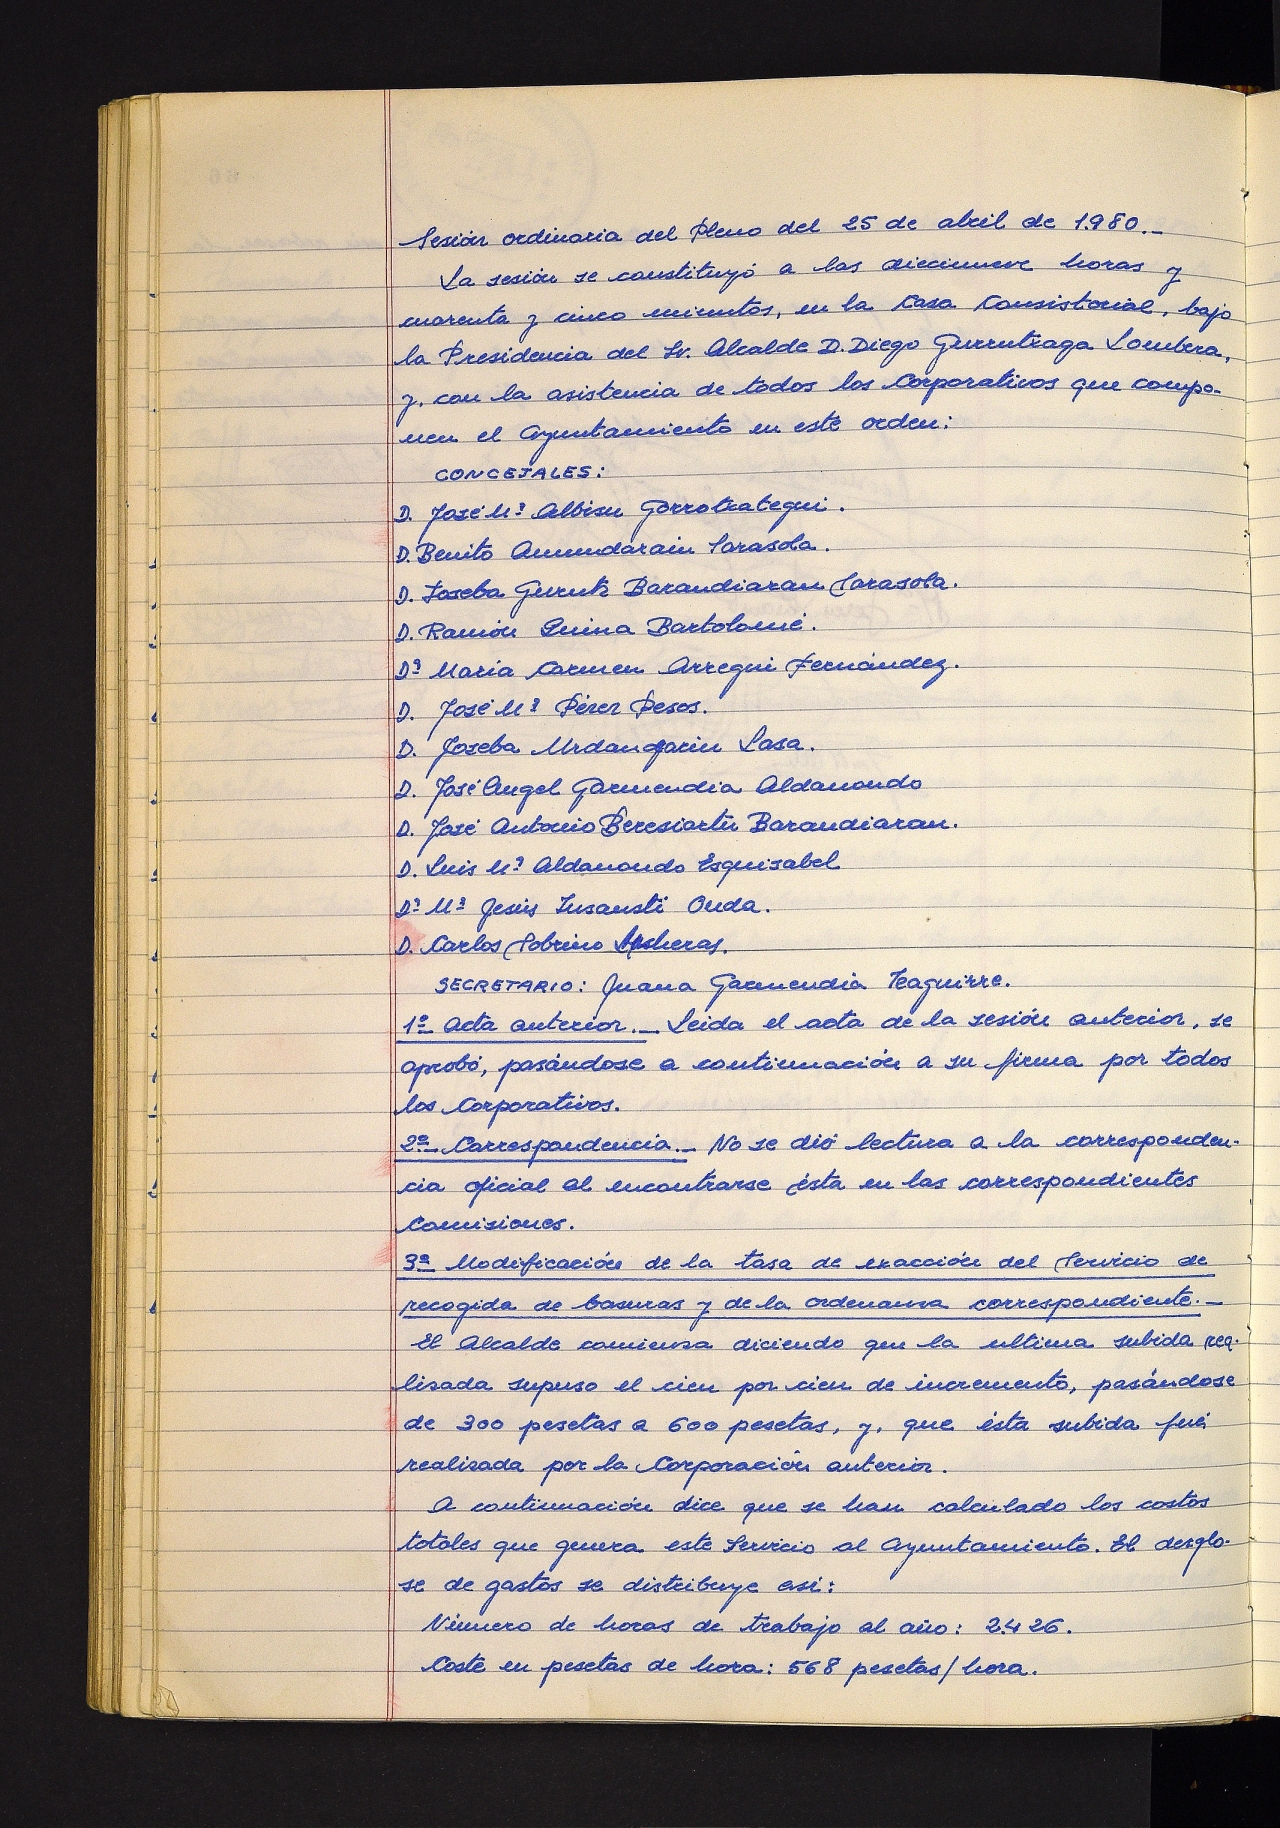 Sesión ordinaria del Pleno del 25 de abril de 1.980._
La sesión se constituyó a las diecinueve horas y
cuarenta y cinco minutos, en la Casa Consistorial, bajo
la Presidencia del Sr. Alcalde D. Diego Gurrutxaga Lombera,
y, con la asistencia de todos los Corporativos que compo-
nen el Ayuntamiento en este orden:
CONCEJALES:
D. José Mª Albisu Gorrotxategui.
D. Benito Amundarain Sarasola.
D. Joseba Gurutz Barandiaran Sarasola.
D. Ramón Quina Bartolomé.
Dª Maria Carmen Arregui Fernández.
D. José Mª Pérez Pesos.
D. Joseba Urdangarin Lasa.
D. José Angel Garmendia Aldanondo
D. José Antonio Beresiartu Barandiaran.
D. Luis Mª Aldanondo Esquisabel
Dª Mª Jesús Insausti Onda.
D. Carlos Sobrino
SECRETARIO: Juana Garmendia Izaguirre.
1º Acta anterior._ Leida el acta de la sesión anterior, se
aprobó, pasándose a continuación a su firma por todos
los Corporativos.
2º Correspondencia._ No se dió lectura a la corresponden-
cia oficial al encontrarse ésta en las correspondientes
Comisiones.
3º Modificación de la tasa de exacción del Servicio de
recogida de basuras y de la ordenanza correspondiente._
El Alcalde comienza diciendo que la ultima subida rea-
lizada supuso el cien por cien de incremento, pasándose
de 300 pesetas a 600 pesetas, y, que ésta subida fué
realizada por la Corporación anterior.
A continuación dice que se han calculado los costos
totales que genera este Servicio al Ayuntamiento. El desglo-
se de gastos se distribuye asi:
Número de horas de trabajo al año: 2.426.
Coste en pesetas de hora: 568 pesetas/hora.